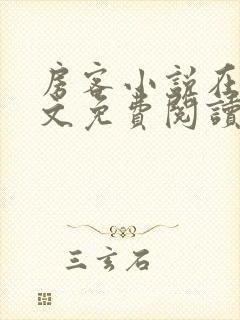 房客小说在
文免費閱讀
三玄石